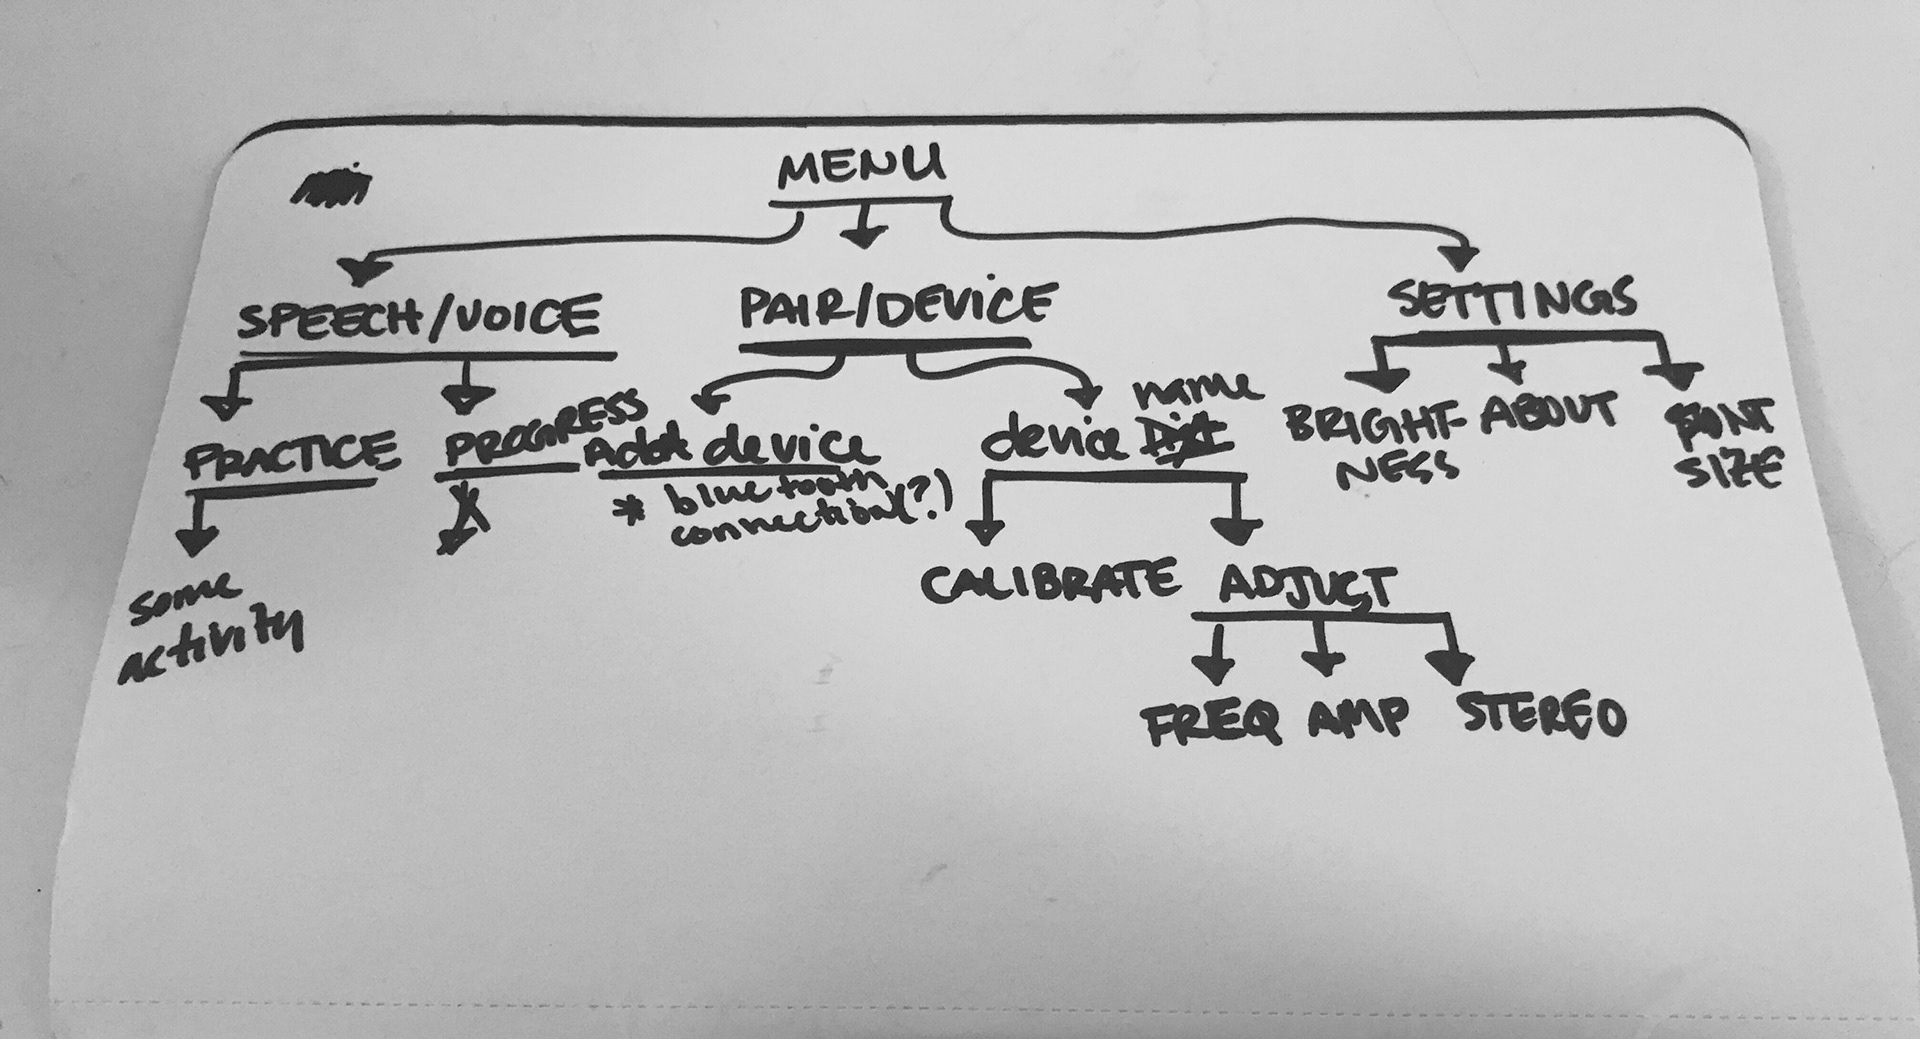 MENU
SPEECH/VOICE
PAIR/DEVICE
SETTINGS
PRACTICE
PROGRESS
Add device
* bluetooth
connection(?)
device name
BRIGHT-
NESS
ABOUT
FONT
SIZE
some
activity
CALIBRATE
ADJUST
FREQ
AMP
STEREO